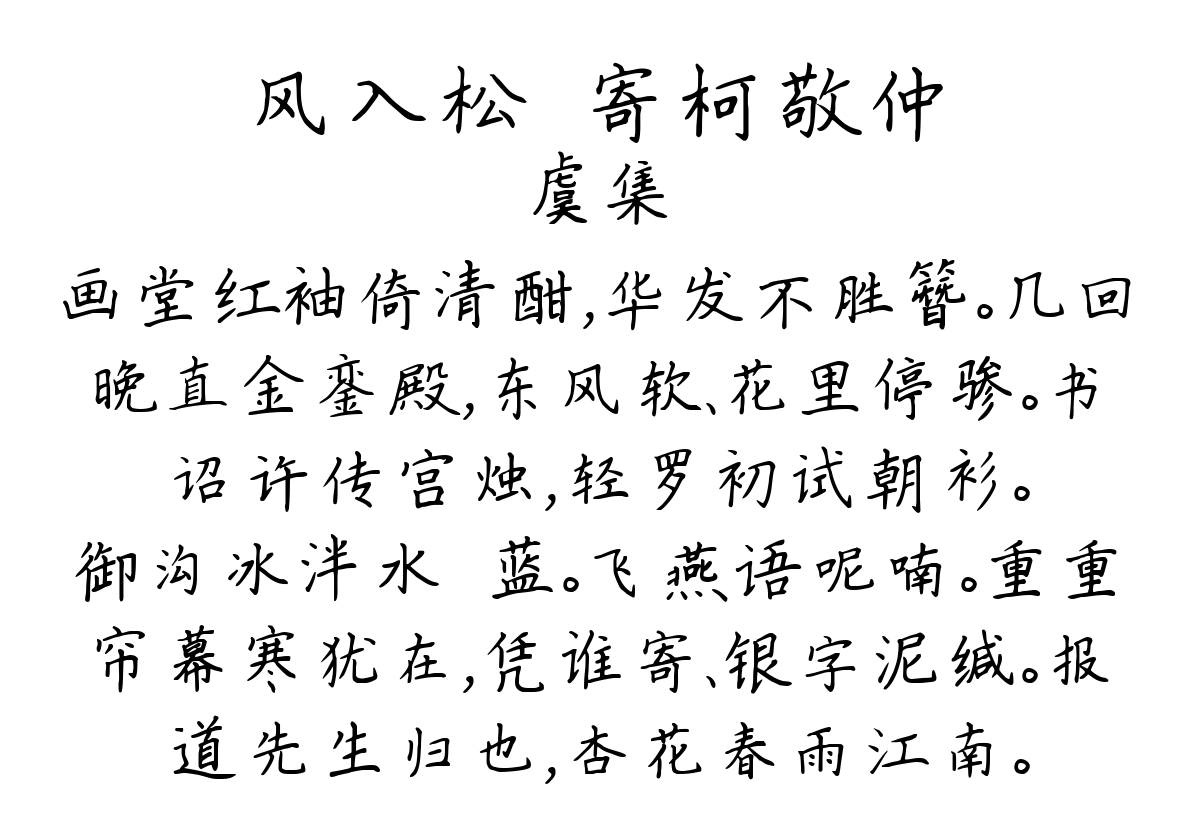 风入松 寄柯敬仲
虞集
画堂红袖倚清酣,华发不胜簪。几回
晚直金銮殿,东风软、花里停骖。书
诏许传宫烛,轻罗初试朝衫。
御沟冰泮水 蓝。飞燕语呢喃。重重
帘幕寒犹在,凭谁寄、银字泥缄。报
道先生归也,杏花春雨江南。